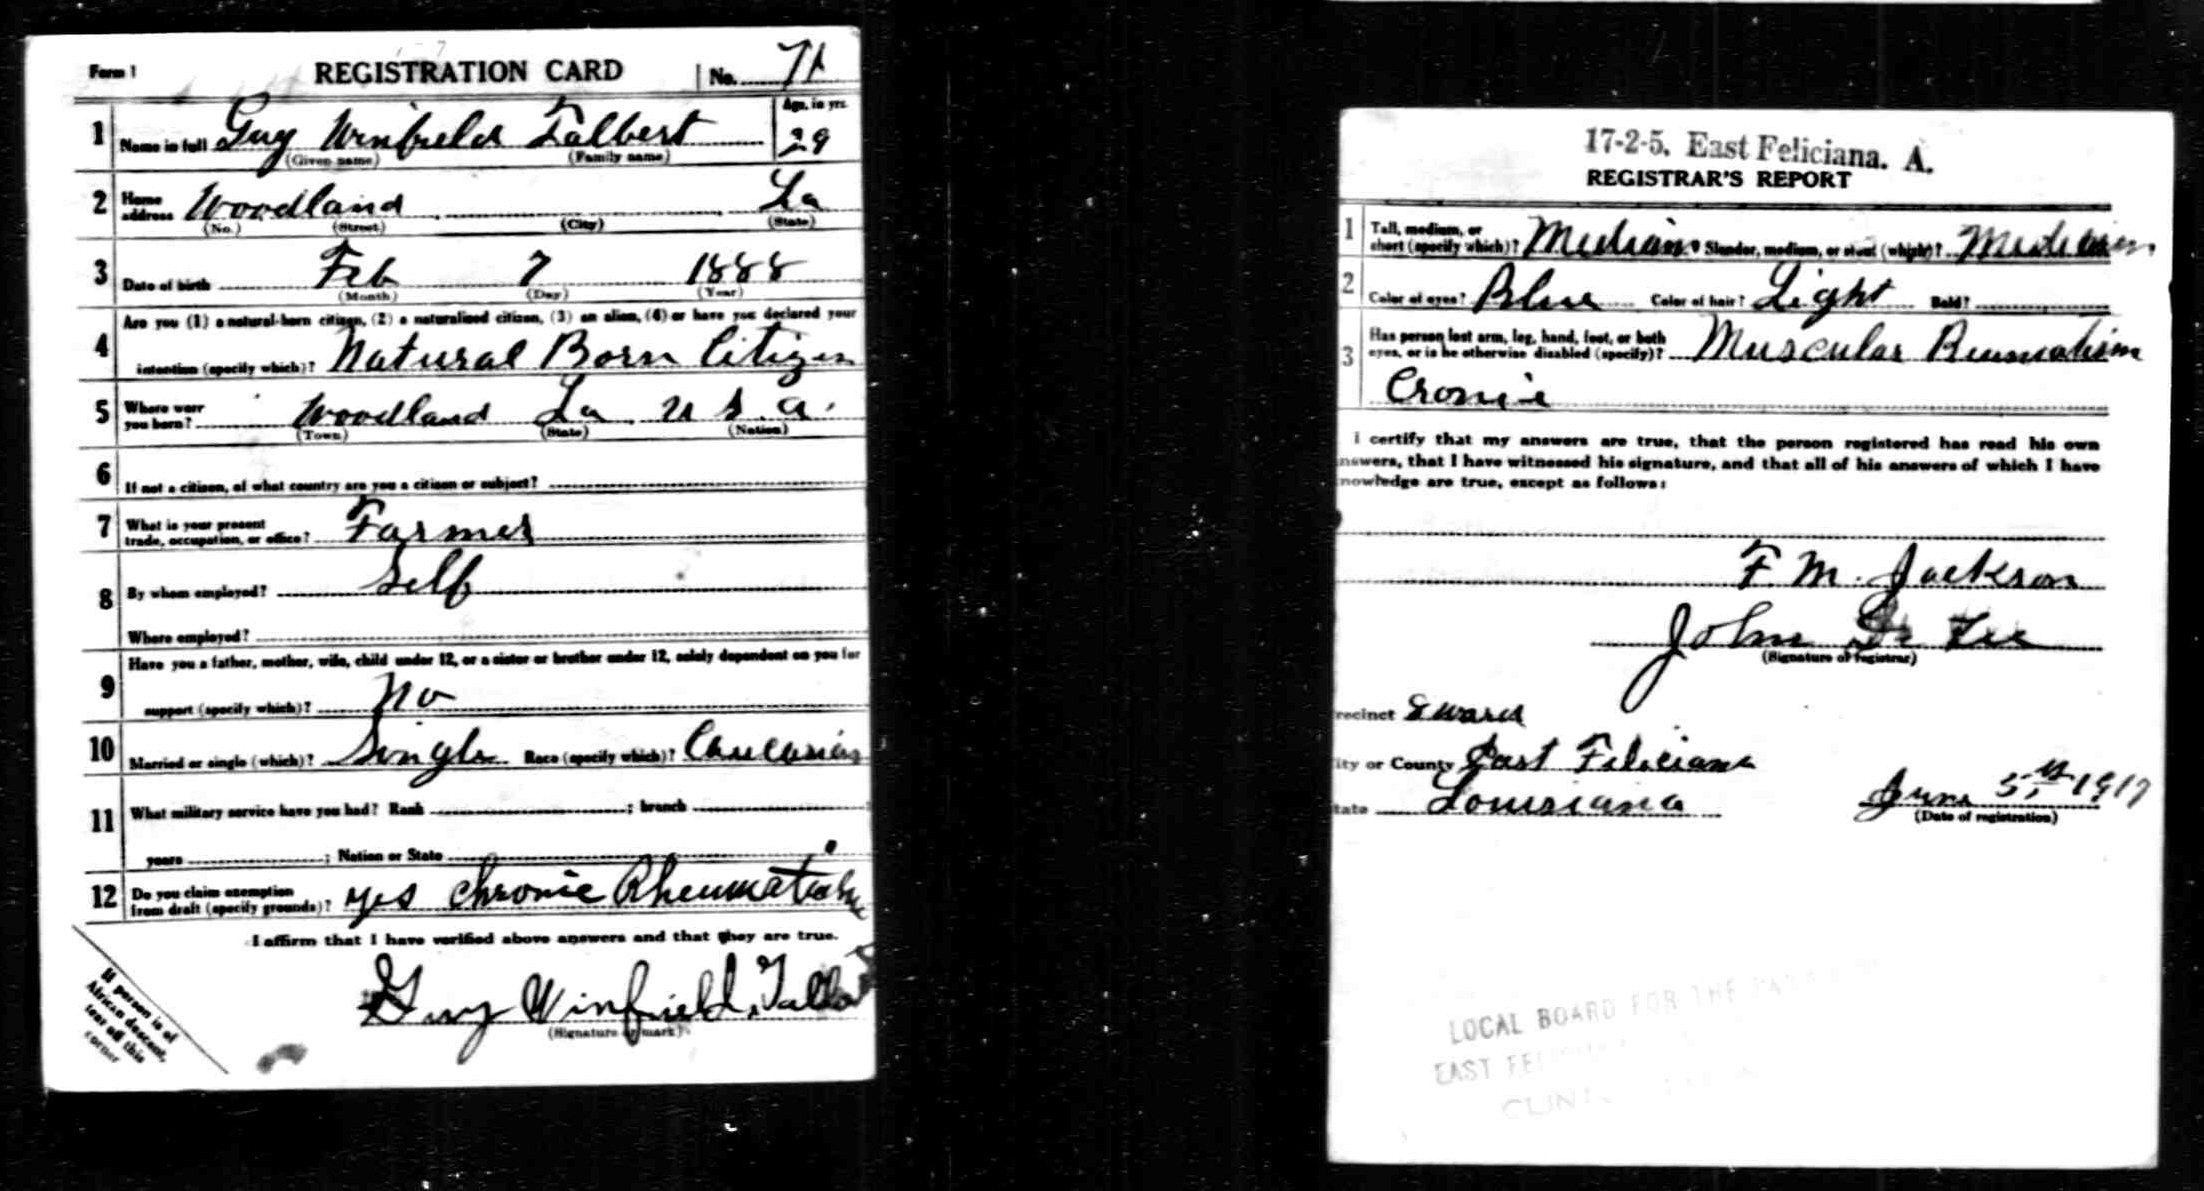 Form 1 REGISTRATION CARD No. 71
1 Name in full Guy Winfield Talbert Age, in yrs. 29
(Given name) (Family name)
2 Home address Woodland La
(No.) (Street) (City) (State)
3 Date of birth Feb 7 1888
(Month) (Day) (Year)
Are you (1) a natural-born citizen, (2) a naturalized citizen, (3) an alien, (4) or have you declared your
4 intention (specify which)? Natural Born Citizen
5 Where were you born? Woodland La U S. A.
(Town) (State) (Nation)
6 If not a citizen, of what country are you a citizen or subject?
7 What is your present trade, occupation, or office? Farmer
8 By whom employed? Self
Where employed?
Have you a father, mother, wife, child under 12, or a sister or brother under 12, solely dependent on you for
9 support (specify which)? No
10 Married or single (which)? Single Race (specify which)? Caucasian
11 What military service have you had? Rank ; branch
years ; Nation or State
12 Do you claim exemption from draft (specify grounds)? yes Chronic Rheumatism
I affirm that I have verified above answers and that they are true.
Guy Winfield Talbe
(Signature or mark)
If person is of
African descent,
tear off this
corner
17-2-5. East Feliciana. A.
REGISTRAR'S REPORT
1 Tall, medium, or short (specify which)? Medium Slender, medium, or stout (which)? Medium
2 Color of eyes? Blue Color of hair? Light Bald?
3 Has person lost arm, leg, hand, foot, or both eyes, or is he otherwise disabled (specify)? Muscular Reumatism
Cronic
I certify that my answers are true, that the person registered has read his own
nswers, that I have witnessed his signature, and that all of his answers of which I have
nowledge are true, except as follows:
F. M. Jackson
John Lee
(Signature of registrar)
recinct ward
ity or County East Feliciana
tate Louisiana June 5th 1917
(Date of registration)
LOCAL BOARD FOR THE
EAST FE
CLIN